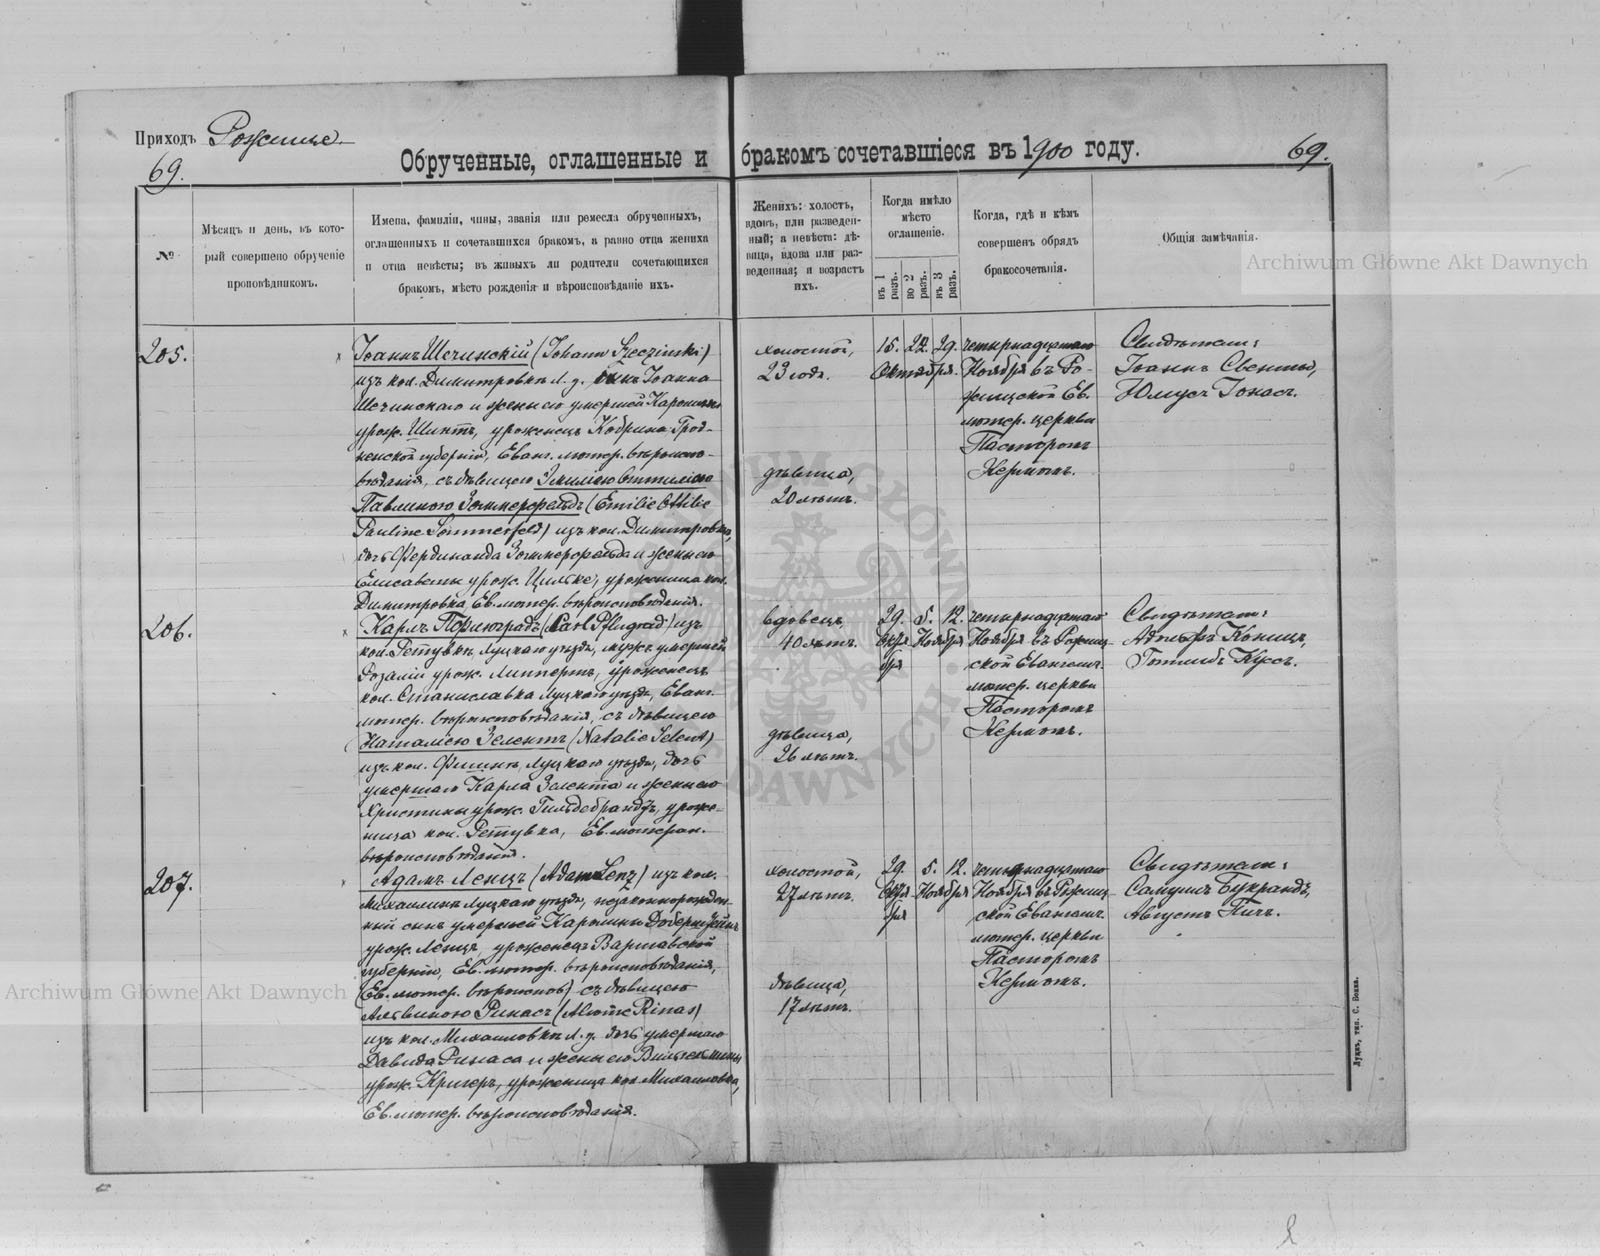 Приходъ Рожище
69.
Обрученные, оглашенные и бракомъ сочетавшіеся въ 1900 году.
69.
№
Мѣсяцъ и день, въ кото-
рый совершено обрученіе
проповѣдникомъ.
Имена, фамиліи, чины, званія или ремесла обрученныхъ,
оглашенныхъ и сочетавшихся бракомъ, а равно отца жениха
и отца невѣсты; въ живыхъ ли родители сочетающихся
бракомъ, мѣсто рожденія и вѣроисповѣданіе ихъ.
Женихъ: холостъ,
вдовъ, или разведен-
ный; а невѣста: дѣ-
вица, вдова или раз-
веденная; и возрастъ
ихъ.
Когда имѣло
мѣсто
оглашеніе.
въ 1 разъ.
во 2 разъ.
въ 3 разъ.
Когда, гдѣ и кѣмъ
совершенъ обрядъ
бракосочетанія.
Общія замѣчанія.
Archiwum Główne Akt Dawnych
205.
Іоаннъ Щечинскій (Johann Szeczinski)
изъ кол. Димитровка Л. у. сынъ Іоанна
Щечинскаго и жены его умершей Каролины
урож. Шинтъ, уроженецъ Кобрина Грод-
ненской губерніи, Еванг. лютер. вѣроиспо-
вѣданія, съ дѣвицею Эмиліею Оттиліею
Павлиною Зоммерфельдъ (Emilie Ottilie
Pauline Sommerfeld) изъ кол. Димитровка,
дочь Фердинанда Зоммерфельда и жены его
Елисаветы урож. Цильке, уроженица кол.
Димитровка, Ев. лютер. вѣроисповѣданія.
холостой,
23 года.
дѣвица,
20 лѣтъ.
15. 22. 29.
Октября.
четырнадцатаго
Ноября въ Ро-
жищской Ев.
лютер. церкви
Пасторомъ
Керномъ.
Свидѣтели:
Іоаннъ Свенты,
Юлиусъ Іонасъ.
206.
Карлъ Пфлюградъ (Carl Pflugrad) изъ
кол. Ретувка, Луцкаго уѣзда, мужъ умершей
Розаліи урож. Липпертъ, уроженецъ
кол. Станиславка Луцкаго уѣзда, Еванг.
лютер. вѣроисповѣданія, съ дѣвицею
Наталіею Зелентъ (Natalie Selent)
изъ кол. Луцкаго уѣзда, дочь
умершаго Карла Зелента и жены его
Христины урож. Гильдебрандъ, уроже-
ница кол. Ретувка, Ев. лютеран.
вѣроисповѣданія.
вдовецъ,
40 лѣтъ.
дѣвица,
26 лѣтъ.
29. 5. 12.
Октя- Ноября
бря
четырнадцатаго
Ноября въ Рожищ-
ской Евангел.
лютер. церкви
Пасторомъ
Керномъ.
Свидѣтели:
Адольфъ Коницъ,
Готлибъ Кусъ.
207.
Адамъ Ленцъ (Adam Lenz) изъ кол.
Михаилинъ Луцкаго уѣзда, незаконнорожден-
ный сынъ умершей Каролины
урож. Ленцъ, уроженецъ Варшавской
губерніи, Ев. лютер. вѣроисповѣданія,
(Ев. лютер. вѣроиспов) съ дѣвицею
Альвиною Ринасъ (Alwine Rinas)
изъ кол. Михаиловка Л. у. дочь умершаго
Давида Ринаса и жены его Вильгельмины
урож. Кригеръ, уроженица кол. Михаиловка,
Ев. лютер. вѣроисповѣданія.
холостой,
27 лѣтъ.
дѣвица,
17 лѣтъ.
29. 5. 12.
Октя- Ноября
бря
четырнадцатаго
Ноября въ Рожищ-
ской Евангел.
лютер. церкви
Пасторомъ
Керномъ.
Свидѣтели:
Самуилъ Букрандъ,
Августъ Пичъ.
Archiwum Główne Akt Dawnych
Луцкъ, тип. С. Бокка.